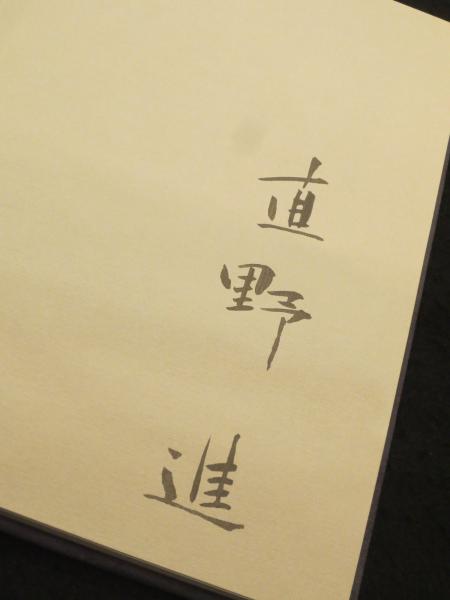 直野
進